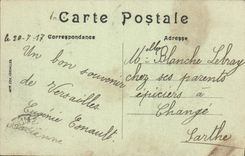 Carte Postale
Correspondance
Adresse
le 20-7-17
Un bon souvenir
de Versailles
Eugénie Esnault
Mlle Blanche Lehay
chez ses parents
épiciers à
Changé
Sarthe